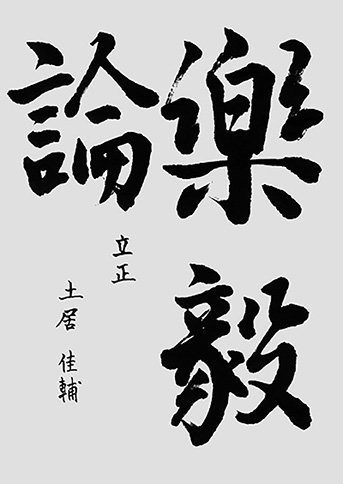 樂毅
論
立正
土居佳輔